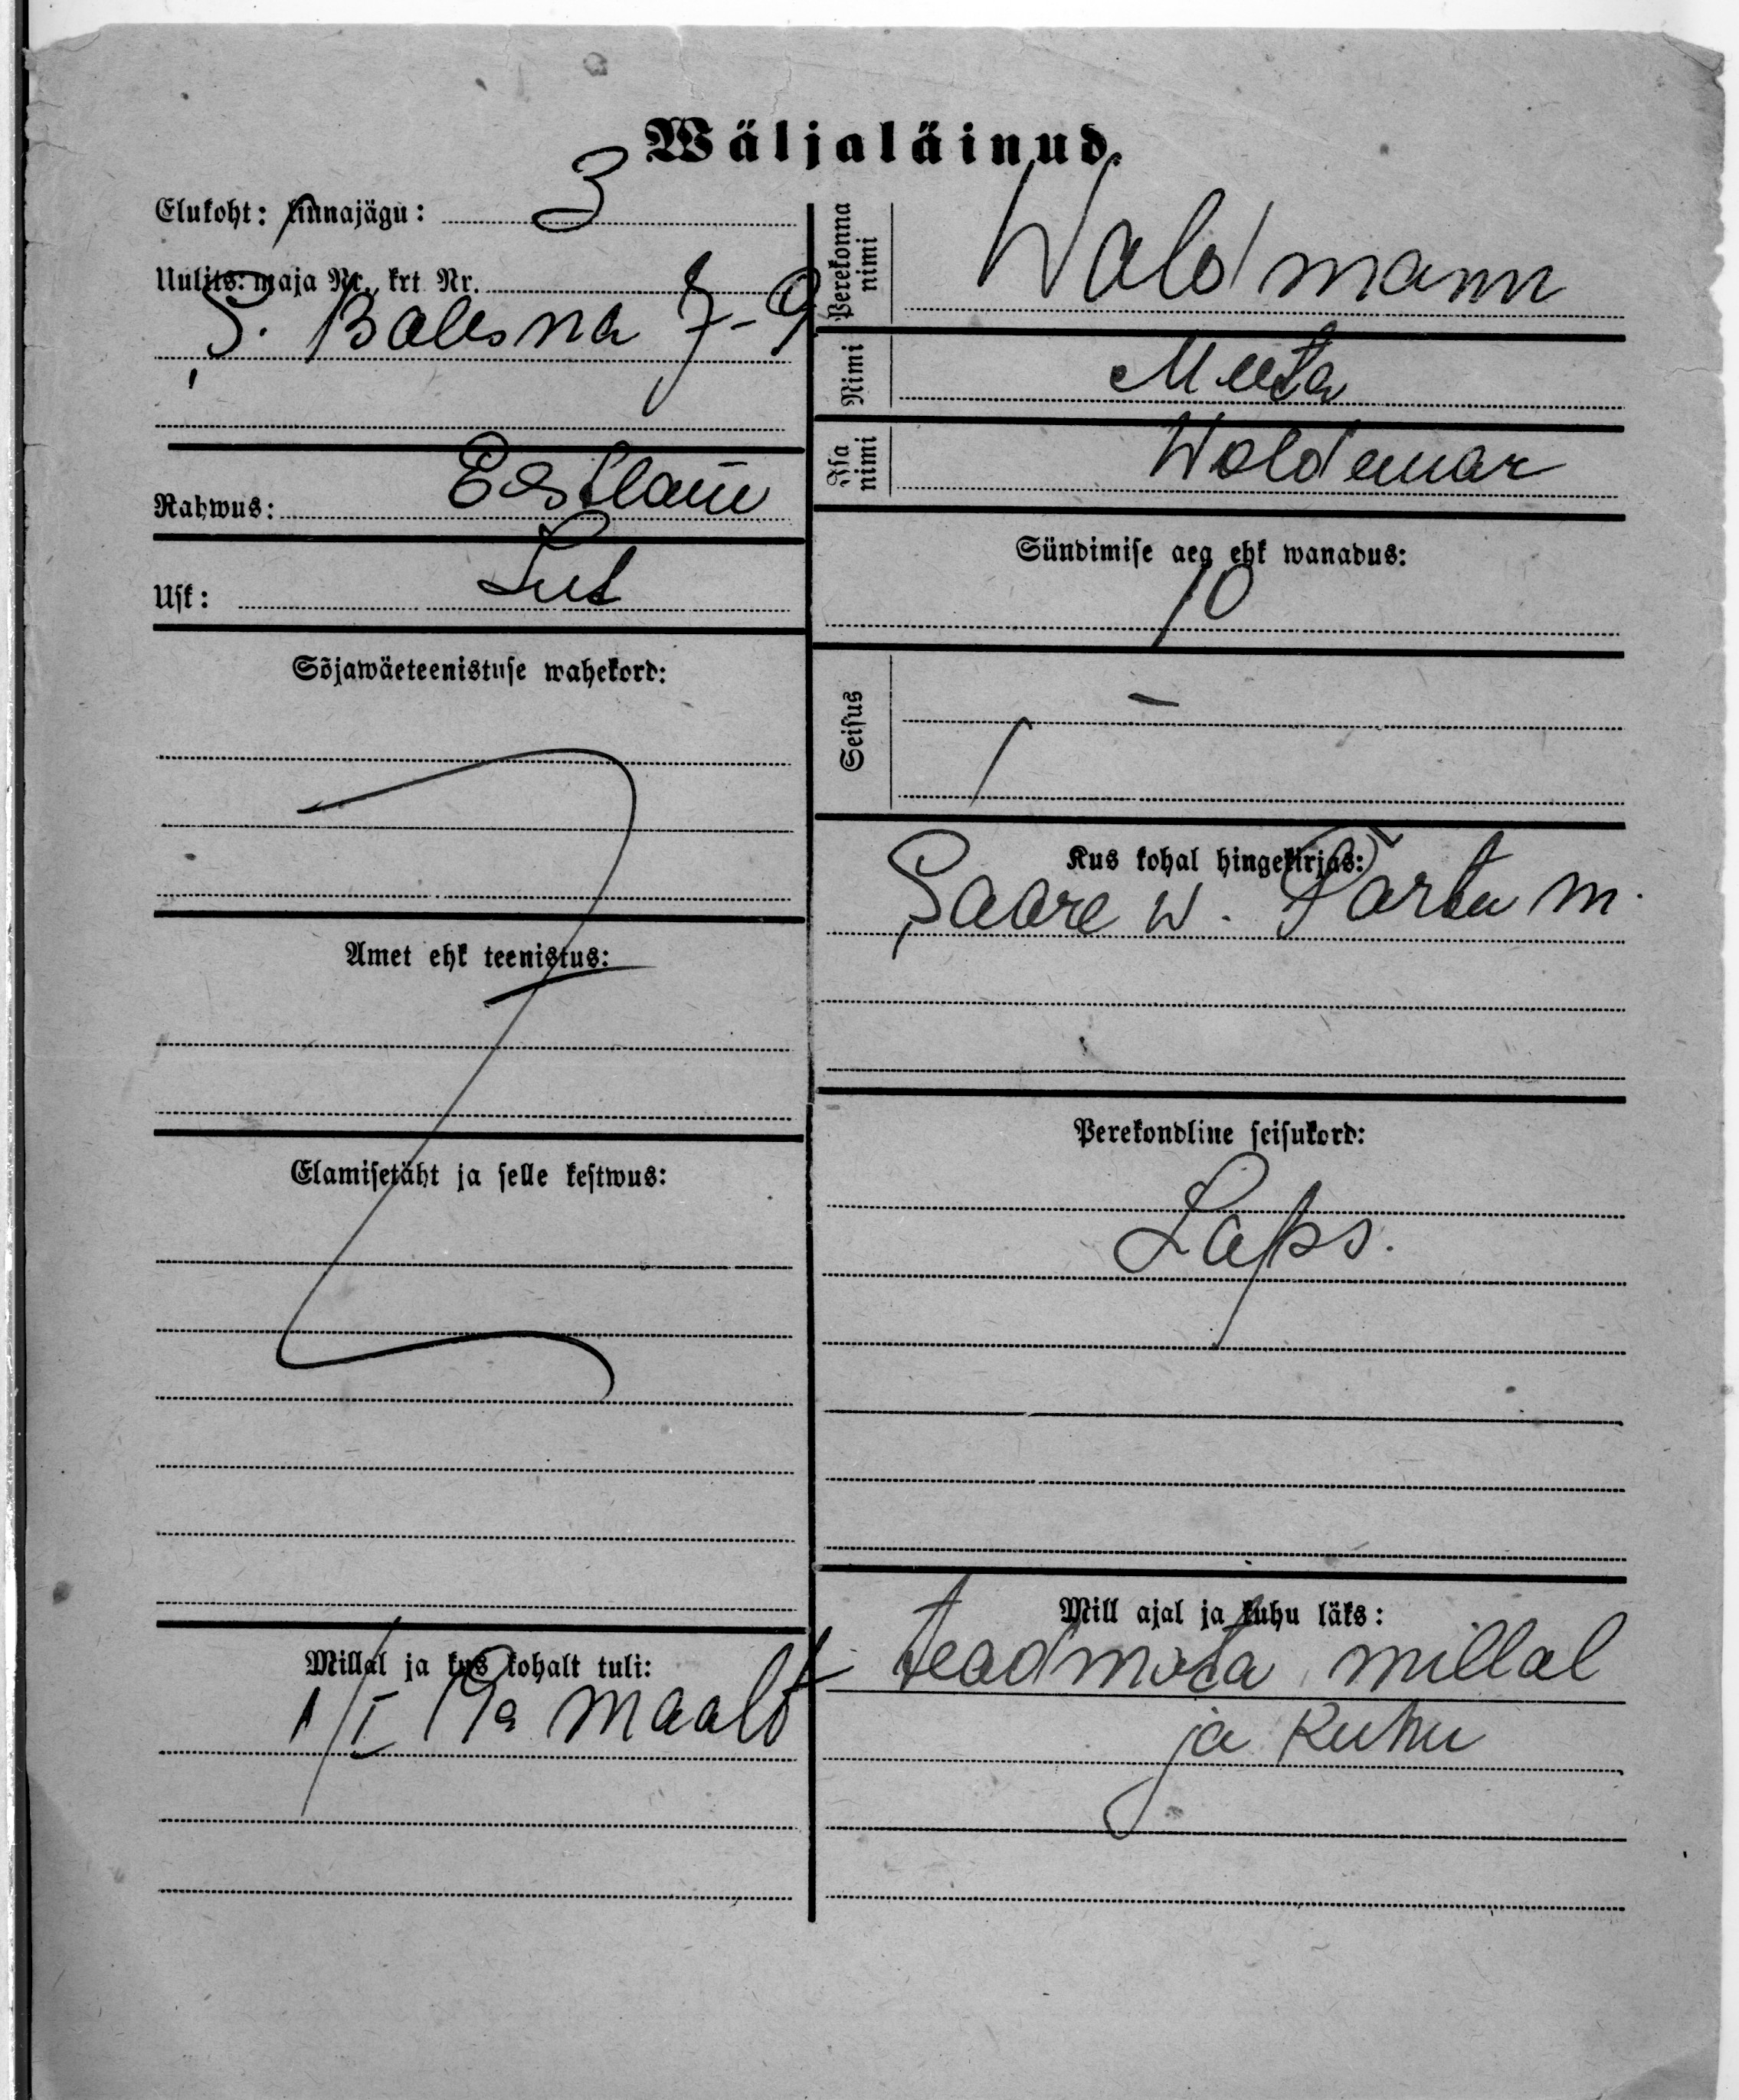 Wäljaläinud.
Elukoht: linnajägu: 3
Uulits: maja Nr. krt Nr.
S. 7-9
Rahwus: Eestlane
Usk: Lut
Sõjawäeteenistuse wahekord:
Amet ehk teenistus:
Elamisetäht ja selle kestwus:
Millal ja kus kohalt tuli:
1/I 19a maalt
Perekonna nimi
Waldmann
Nimi
Meeta
Isa nimi
Woldemar
Sündimise aeg ehk wanadus:
10
Seisus
–
Kus kohal hingekirjas:
Saare w. Tartu m.
Perekondline seisukord:
Laps.
Mill ajal ja kuhu läks:
teadmata millal
ja kuhu